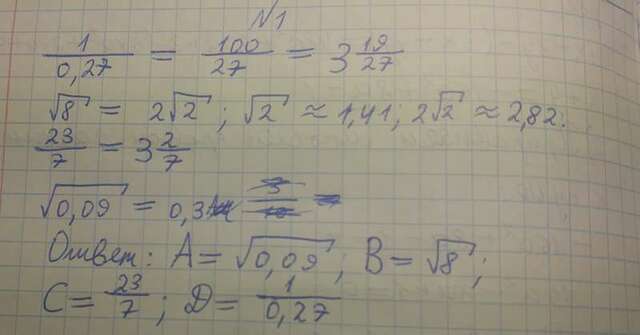 N1
1/0,27 = 100/27 = 3 19/27
√8 = 2√2; √2 ≈ 1,41; 2√2 ≈ 2,82.
23/7 = 3 2/7
√0,09 = 0,3
Ответ: A = √0,09; B = √8;
C = 23/7; D = 1/0,27